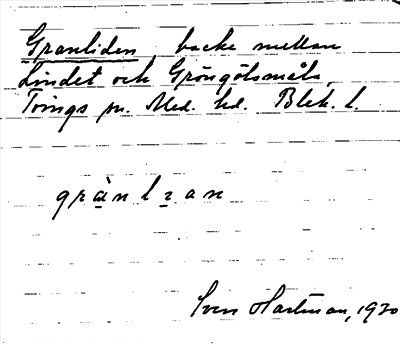 Granliden, backe mellan
Lindet och Gröngölsmåla,
Tvings sn. Med. hd. Blek. l.
grànlɪan
Sven Hartman, 1930